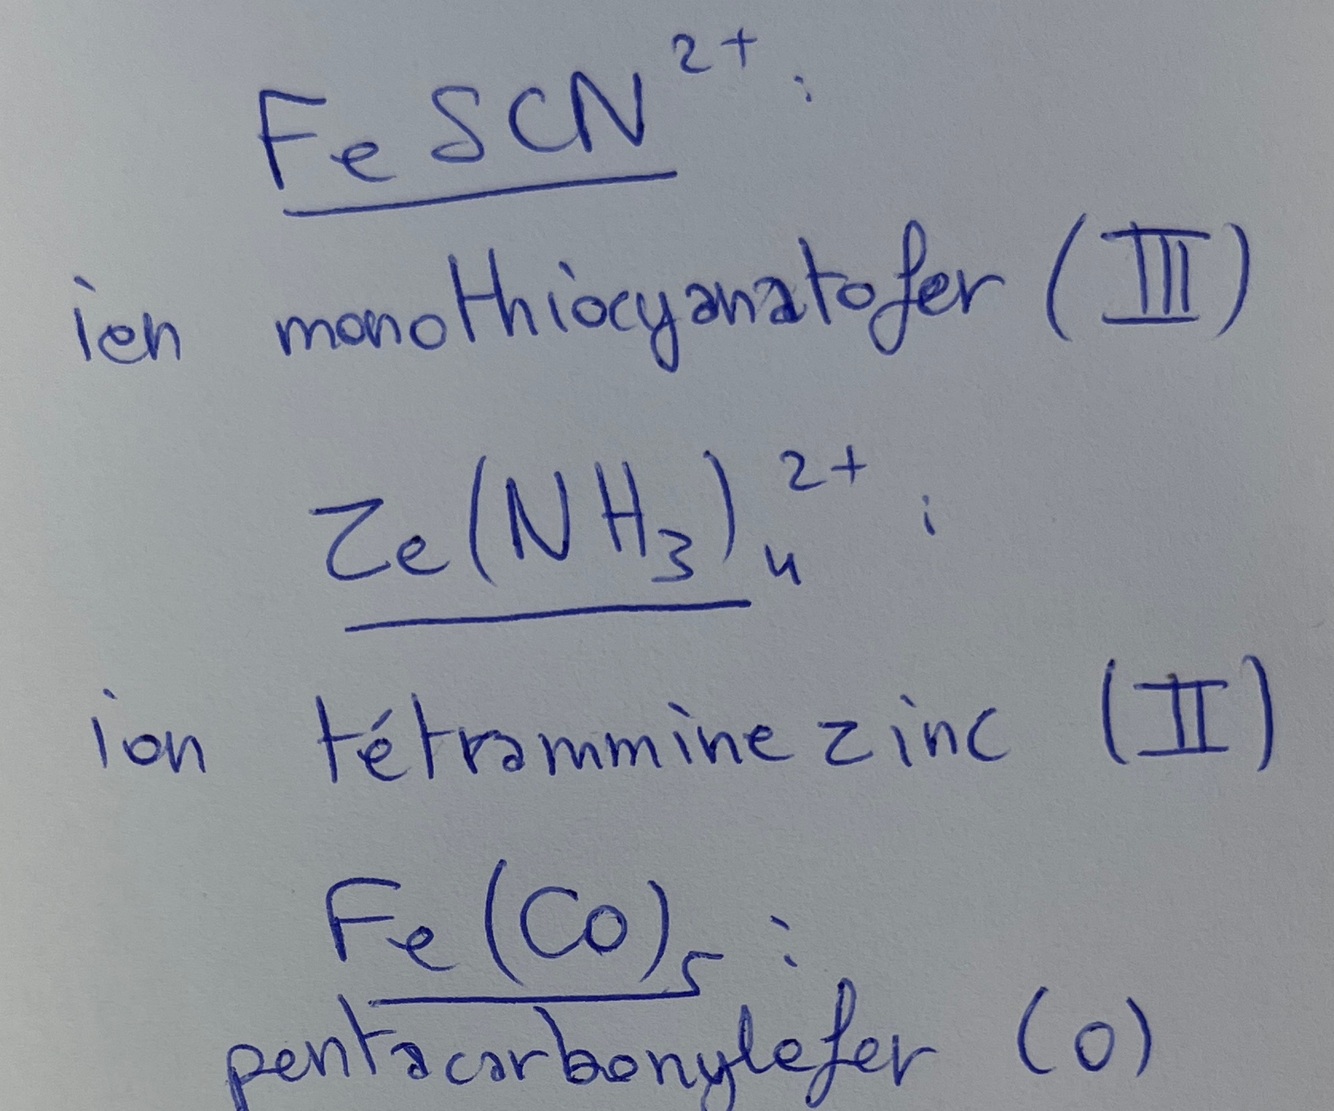 FeSCN²⁺:
ien monothiocyanatofer (III)
Ze(NH₃)₄²⁺:
ion tétrammine zinc (II)
Fe(Co)₅:
pentacarbonylefer (0)